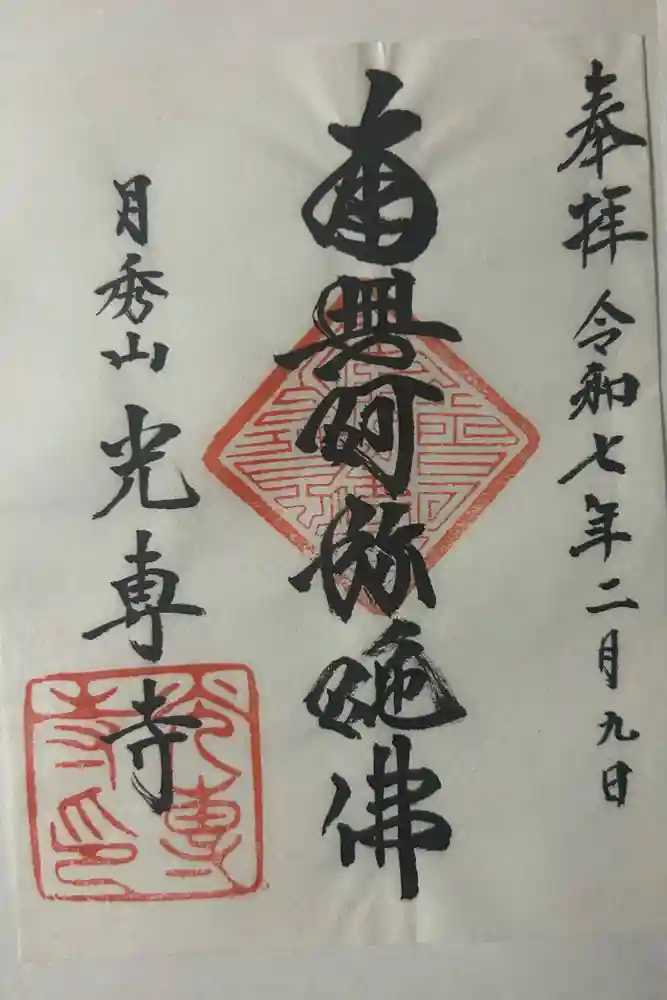 奉拝 令和七年二月九日
南無阿弥陀佛
月秀山 光専寺
光専
寺印